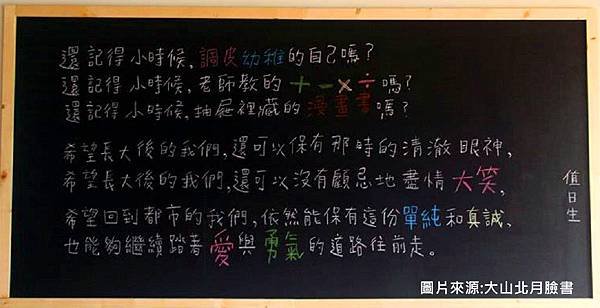 還記得小時候,調皮幼稚的自己嗎?
還記得小時候,老師教的+-×÷嗎?
還記得小時候,抽屜裡藏的漫畫書嗎?
希望長大後的我們,還可以保有那時的清澈眼神,
希望長大後的我們,還可以沒有顧忌地盡情大笑,
希望回到都市的我們,依然能保有這份單純和真誠、
也能夠繼續踏著愛與勇氣的道路往前走。
值日生
圖片來源:大山北月臉書